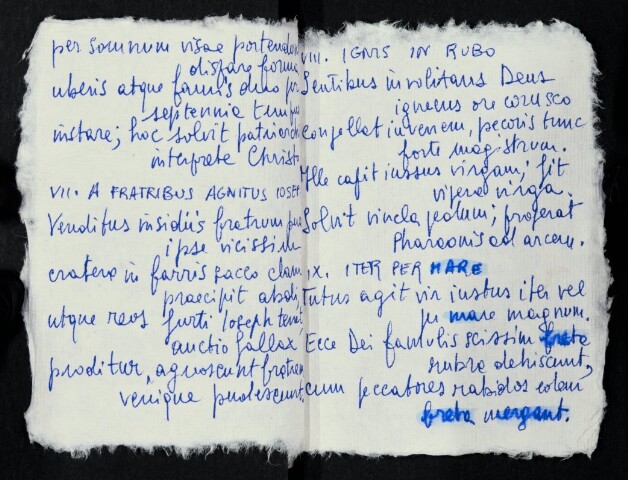 per somnum visae portendu
dispare forma
uberis atque famis duo per
septennia tempus
instare; hoc solvit patriarch
interprete Christ
VII. A FRATRIBUS AGNITUS IOSEF
Venditus insidiis fratrum
ipse vicissim
cratera in farris sacco clam
praecipit abdi.
utque reos furti Ioseph tenet,
auctio fallax
proditur, agnoscunt fratrem
veniaque pudescunt.
VIII. IGNIS IN RUBO
Sentibus involitans Deus
igneus ore corusco
conpellat iuvenem, pecoris tunc
forte magistrum.
Ille capit iussus virgam; fit
vipera virga.
Solvit vincla pedum; properat
Pharaonis ad arcem.
IX. ITER PER MARE
Tutus agit vir iustus iter vel
per mare magnum.
Ecce Dei famulis scissim freta
rubra dehiscunt,
cum peccatores rabidos eadem
freta mergant.